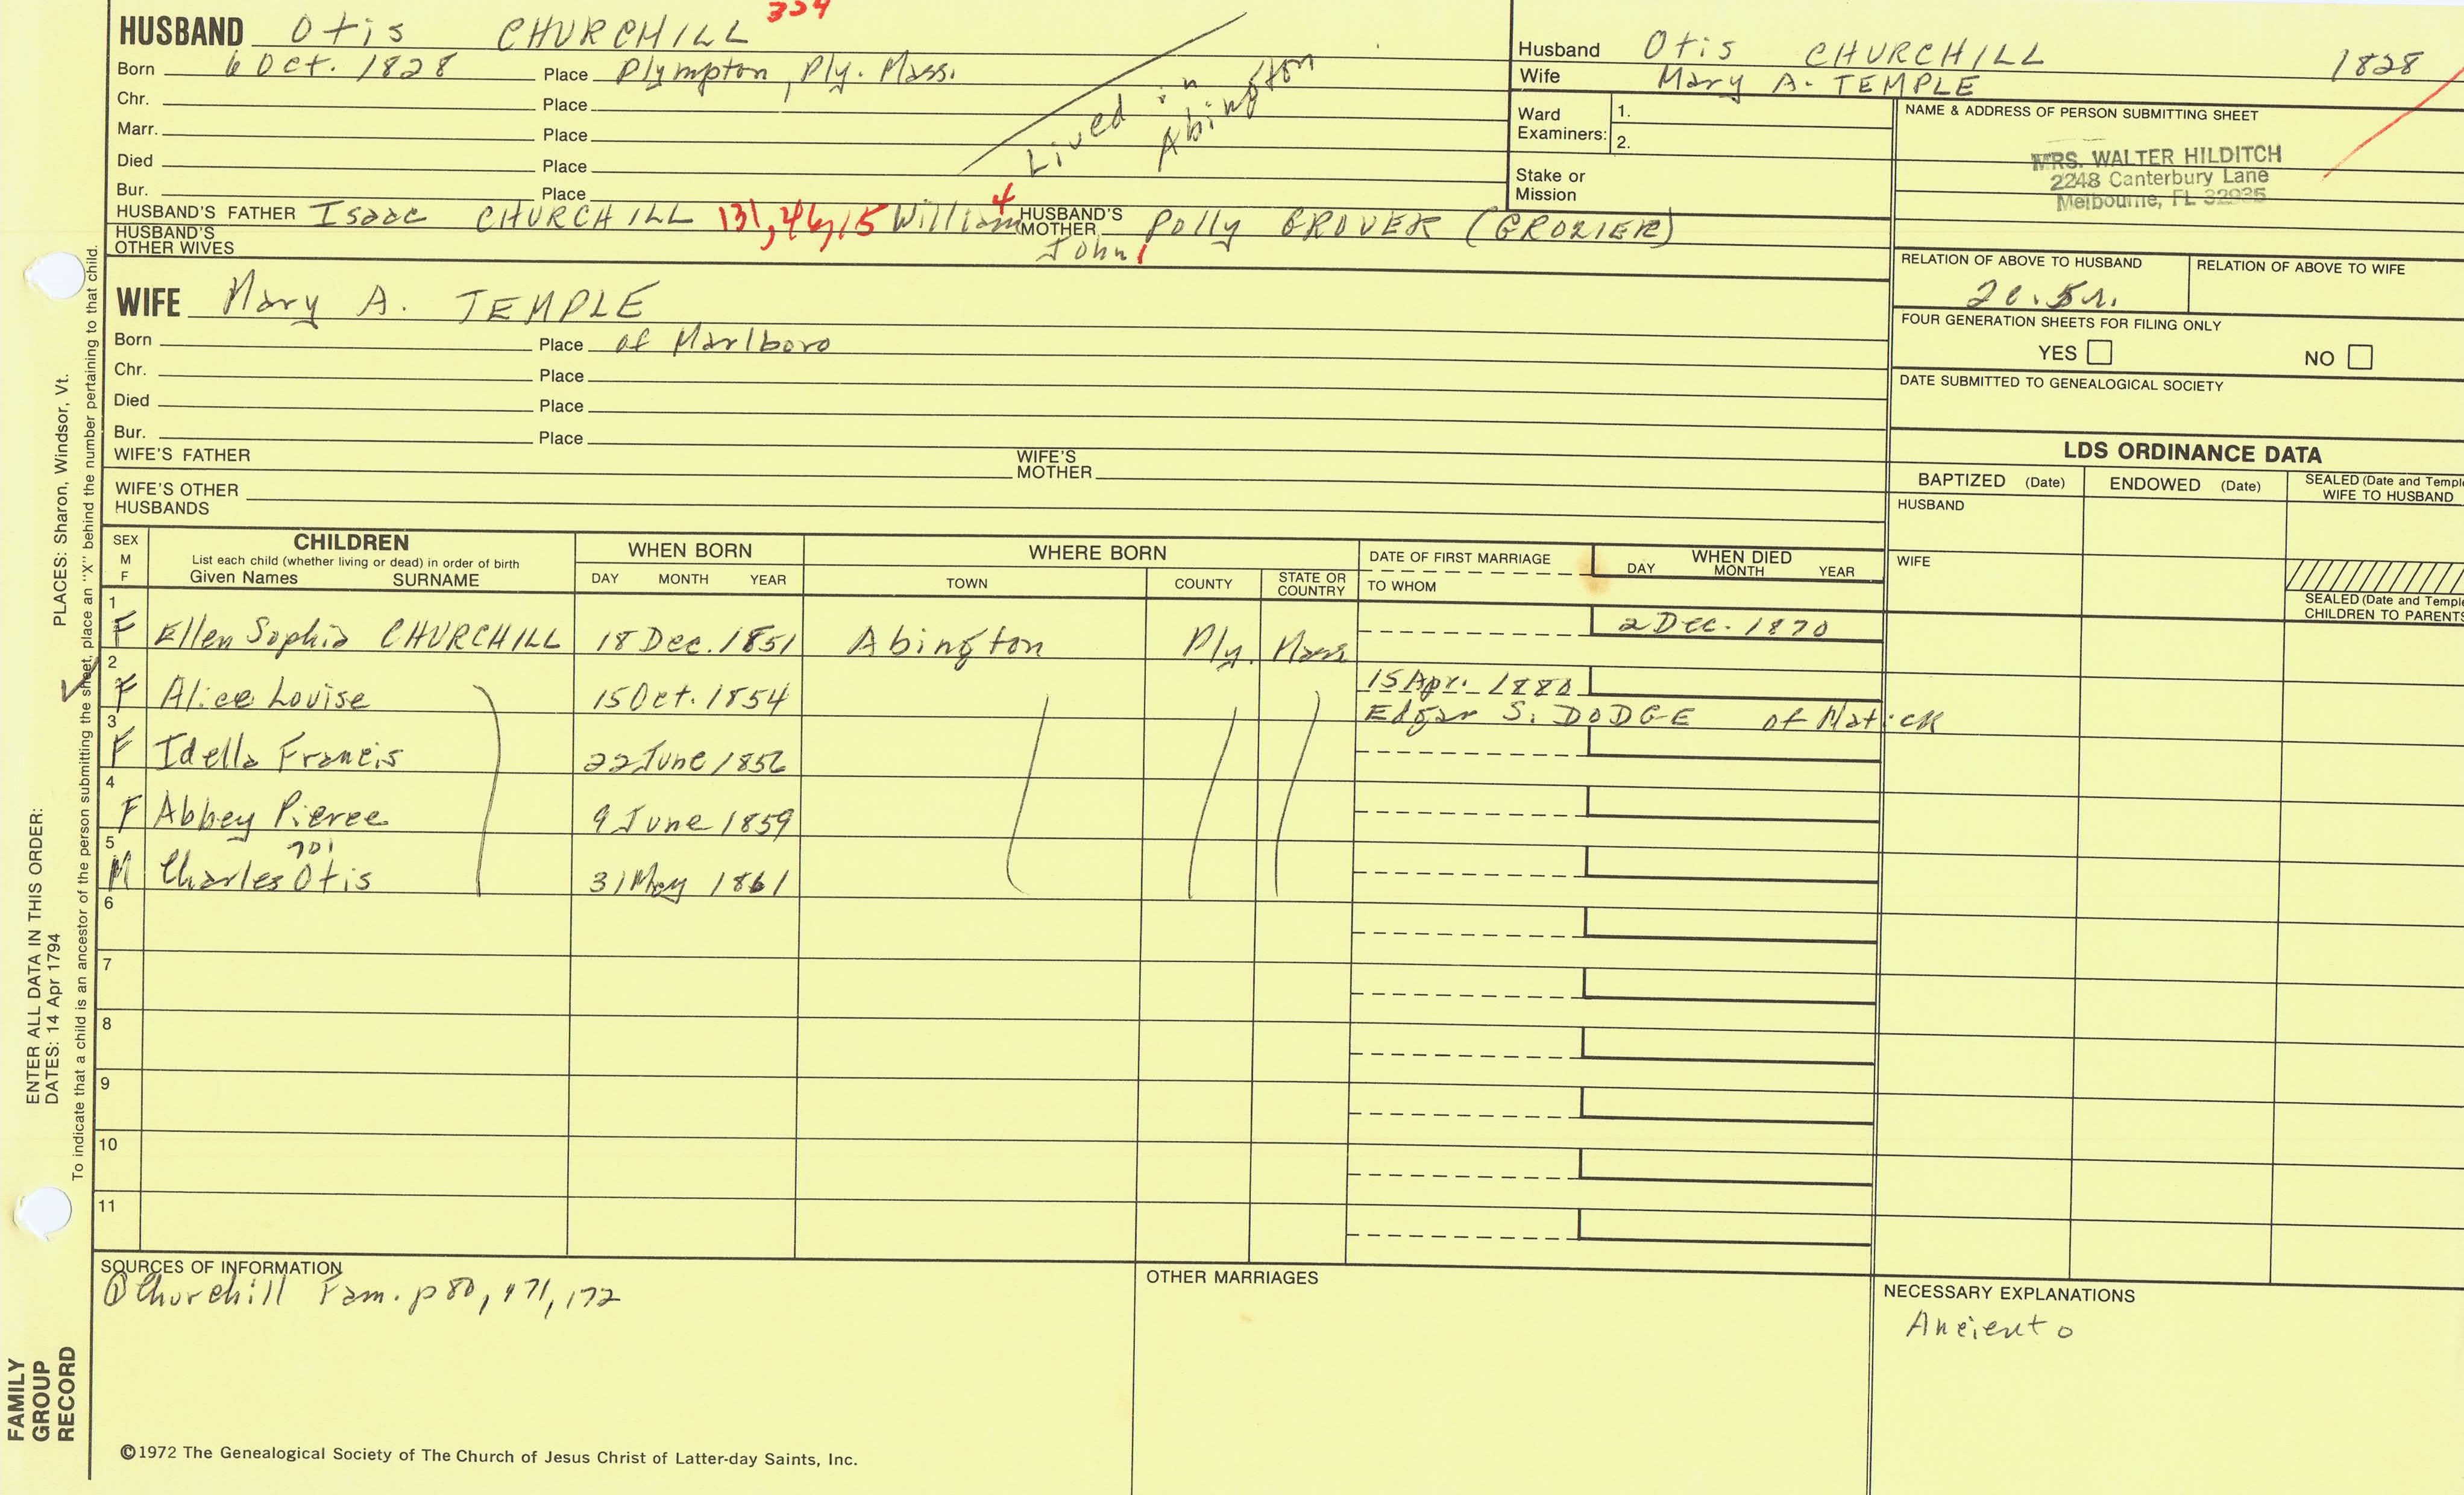 334
HUSBAND Otis CHURCHILL
Born 6 Oct. 1828 Place Plympton, Ply. Mass.
Chr. Place
Marr. Place
Died Place
Bur. Place
Lived in Abington
HUSBAND'S FATHER Isaac CHURCHILL 131, 46, 15 William 4 HUSBAND'S MOTHER Polly GROVER (GROZIER)
John 1
HUSBAND'S OTHER WIVES
Husband Otis CHURCHILL 1828
Wife Mary A. TEMPLE
Ward Examiners: 1.
2.
Stake or Mission
NAME & ADDRESS OF PERSON SUBMITTING SHEET
MRS. WALTER HILDITCH
2248 Canterbury Lane
Melbourne, FL 32935
RELATION OF ABOVE TO HUSBAND RELATION OF ABOVE TO WIFE
2c. 5r.
FOUR GENERATION SHEETS FOR FILING ONLY
YES NO
DATE SUBMITTED TO GENEALOGICAL SOCIETY
WIFE Mary A. TEMPLE
Born Place of Marlboro
Chr. Place
Died Place
Bur. Place
WIFE'S FATHER WIFE'S MOTHER
WIFE'S OTHER HUSBANDS
LDS ORDINANCE DATA
BAPTIZED (Date) ENDOWED (Date) SEALED (Date and Templ
WIFE TO HUSBAND
HUSBAND
WIFE
SEALED (Date and Templ
CHILDREN TO PARENTS
SEX M F
CHILDREN
List each child (whether living or dead) in order of birth
Given Names SURNAME
WHEN BORN
DAY MONTH YEAR
WHERE BORN
TOWN COUNTY STATE OR COUNTRY
DATE OF FIRST MARRIAGE
TO WHOM
WHEN DIED
DAY MONTH YEAR
1 F Ellen Sophia CHURCHILL 18 Dec. 1851 Abington Ply. Mass 2 Dec. 1870
2 F Alice Louise 15 Oct. 1854 15 Apr. 1880
Edgar S. DODGE of Natick
3 F Idella Francis 22 June 1856
4 F Abbey Pierce 9 June 1859
5 M Charles Otis 701 31 May 1861
6
7
8
9
10
11
SOURCES OF INFORMATION
① Churchill Fam. p 80, 171, 172
OTHER MARRIAGES
NECESSARY EXPLANATIONS
Anciento
©1972 The Genealogical Society of The Church of Jesus Christ of Latter-day Saints, Inc.
FAMILY GROUP RECORD
ENTER ALL DATA IN THIS ORDER:
DATES: 14 Apr 1794
PLACES: Sharon, Windsor, Vt.
To indicate that a child is an ancestor of the person submitting the sheet, place an "X" behind the number pertaining to that child.